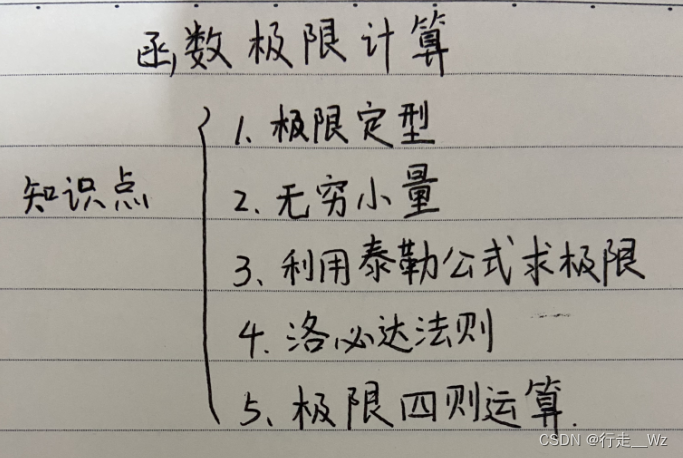 函数极限计算
1、极限定型
知识点
2、无穷小量
3、利用泰勒公式求极限
4、洛必达法则
5、极限四则运算.
CSDN @行走__Wz